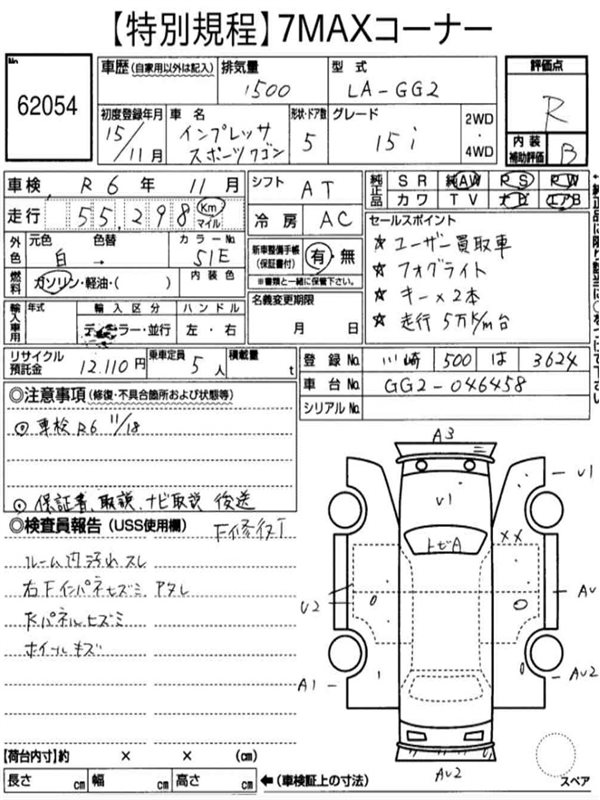 【特別規程】7MAXコーナー
No
62054
車歴(自家用以外は記入)
排気量
1500
型式
LA-GG2
評価点
R
内装
補助評価
B
初度登録年月
15/11月
車名
インプレッサ
スポーツワゴン
形状・ドア数
5
グレード
15i
2WD
・
4WD
車検 R6年 11月
シフト AT
純正品
SR 純AW PS PW
カワ TV ナビ エアB
走行 55,298 Km マイル
冷房 AC
セールスポイント
☆ ユーザー買取車
☆ フォグライト
☆ キー×2本
☆ 走行 5万K/m台
外色
元色 色替
白 →
カラーNo.
51E
新車整備手帳
(保証書付)
有・無
※書類と一緒に保管下さい。
燃料
ガソリン・軽油・( )
内装色
名義変更期限
月 日
輸入車用
年式
輸入区分
ディーラー・並行
ハンドル
左・右
リサイクル
預託金
12.110円
乗車定員
5人
積載量
t
登録No. 川崎 500 は 3624
車台No. GG2-046458
シリアルNo.
◎注意事項(修復・不具合箇所および状態等)
◎ 車検 R6 11/18
◎ 保証書、取説、ナビ取説 後送
◎検査員報告(USS使用欄)
ルーム内汚れ スレ
右Fインパネヒズミ アタレ
Rパネルヒズミ
ホイールキズ
A3
U1
V1
トビA
××
U2
AU
A1
AU2
AU2
スペア
【荷台内寸】約 × × (cm)
長さ cm 幅 cm 高さ cm ←(車検証上の寸法)